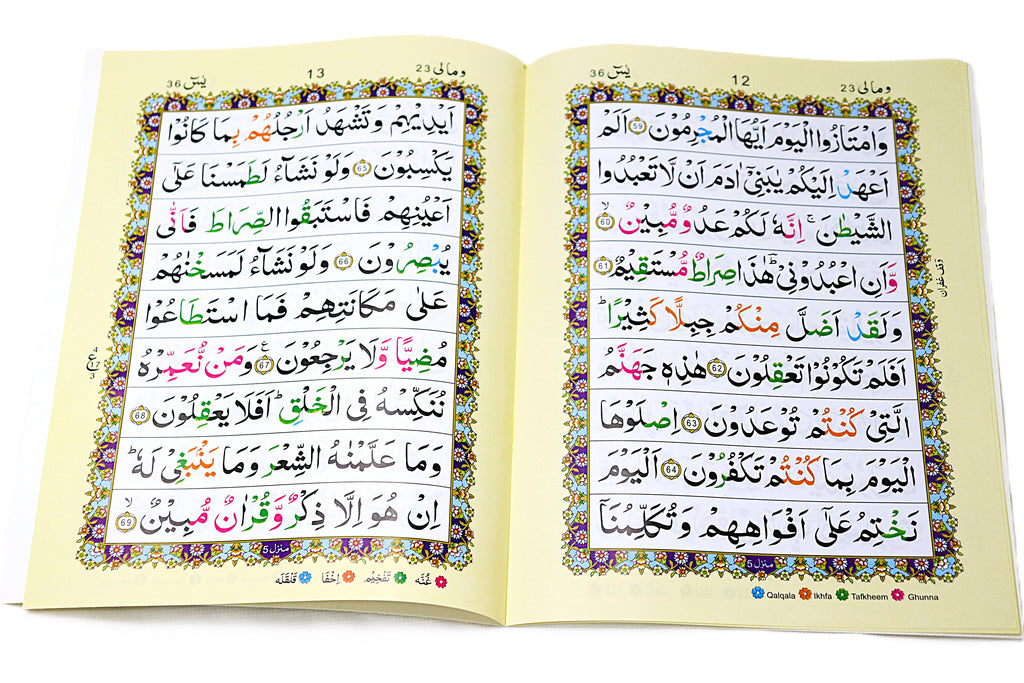 ومالی 23
12
يٰسٓ 36
وَامْتَازُوا الْيَوْمَ اَيُّهَا الْمُجْرِمُوْنَ 59 اَلَمْ
اَعْهَدْ اِلَيْكُمْ يٰبَنِيْۤ اٰدَمَ اَنْ لَّا تَعْبُدُوا
الشَّيْطٰنَ ۚ اِنَّهٗ لَكُمْ عَدُوٌّ مُّبِيْنٌ ۙ 60
وَّاَنِ اعْبُدُوْنِيْ ؕ هٰذَا صِرَاطٌ مُّسْتَقِيْمٌ 61
وقف غفران
وَلَقَدْ اَضَلَّ مِنْكُمْ جِبِلًّا كَثِيْرًا ؕ
اَفَلَمْ تَكُوْنُوْا تَعْقِلُوْنَ 62 هٰذِهٖ جَهَنَّمُ
الَّتِيْ كُنْتُمْ تُوْعَدُوْنَ 63 اِصْلَوْهَا
الْيَوْمَ بِمَا كُنْتُمْ تَكْفُرُوْنَ 64 اَلْيَوْمَ
نَخْتِمُ عَلٰۤى اَفْوَاهِهِمْ وَتُكَلِّمُنَاۤ
منزل 5
Qalqala Ikhfa Tafkheem Ghunna
ومالی 23
13
يٰسٓ 36
اَيْدِيْهِمْ وَتَشْهَدُ اَرْجُلُهُمْ بِمَا كَانُوْا
يَكْسِبُوْنَ 65 وَلَوْ نَشَآءُ لَطَمَسْنَا عَلٰۤى
اَعْيُنِهِمْ فَاسْتَبَقُوا الصِّرَاطَ فَاَنّٰى
يُبْصِرُوْنَ 66 وَلَوْ نَشَآءُ لَمَسَخْنٰهُمْ
عَلٰى مَكَانَتِهِمْ فَمَا اسْتَطَاعُوْا
مُضِيًّا وَّلَا يَرْجِعُوْنَ ع 67 وَمَنْ نُّعَمِّرْهُ
4 ع 17 3
نُنَكِّسْهُ فِي الْخَلْقِ ؕ اَفَلَا يَعْقِلُوْنَ 68
وَمَا عَلَّمْنٰهُ الشِّعْرَ وَمَا يَنْۢبَغِيْ لَهٗ ؕ
اِنْ هُوَ اِلَّا ذِكْرٌ وَّقُرْاٰنٌ مُّبِيْنٌ ۙ 69
منزل 5
غُنَّه تَفْخِيْم اِخْفَا قَلْقَلَه